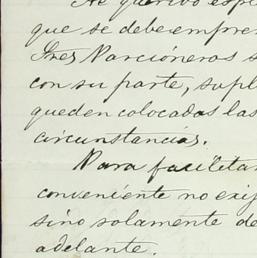 He querido espl
que se debe empren
Tres Parcioneros s
con su parte, supl
queden colocadas las
circunstancias.
Para facilitar
conveniente no exij
sino solamente de
adelante.